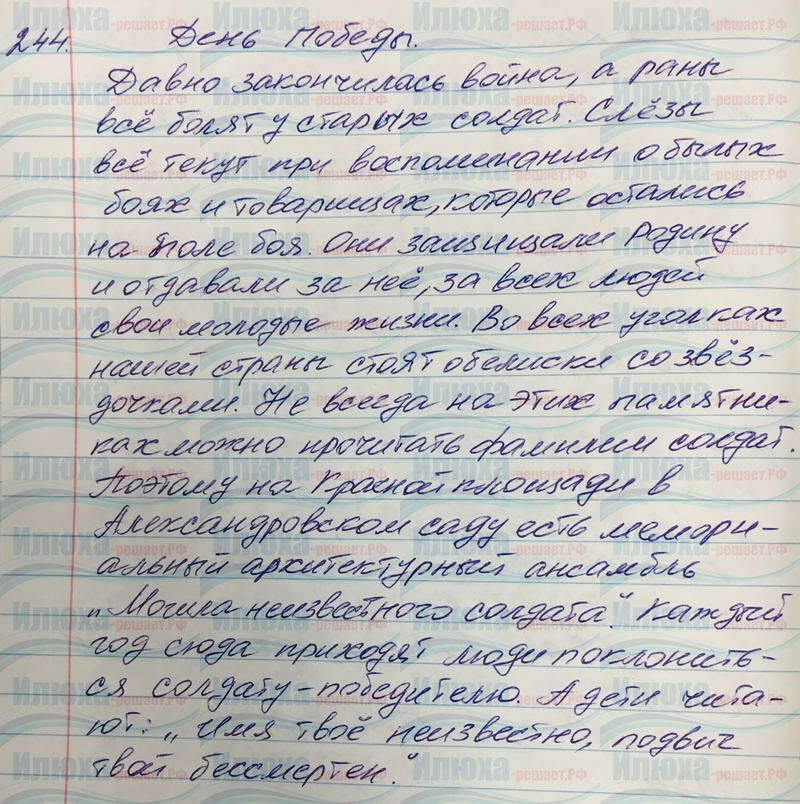 244. День Победы.
Давно закончилась война, а раны
всё болят у старых солдат. Слёзы
всё текут при воспоминании о былых
боях и товарищах, которые остались
на поле боя. Они защищали Родину
и отдавали за неё, за всех людей
свои молодые жизни. Во всех уголках
нашей страны стоят обелиски со звёз-
дочками. Не всегда на этих памятни-
ках можно прочитать фамилии солдат.
Поэтому на Красной площади в
Александровском саду есть мемори-
альный архитектурный ансамбль
„Могила неизвестного солдата“. Каждый
год сюда приходят люди поклонить-
ся солдату-победителю. А дети чита-
ют: „Имя твоё неизвестно, подвиг
твой бессмертен.“
Илюха-решает.РФ